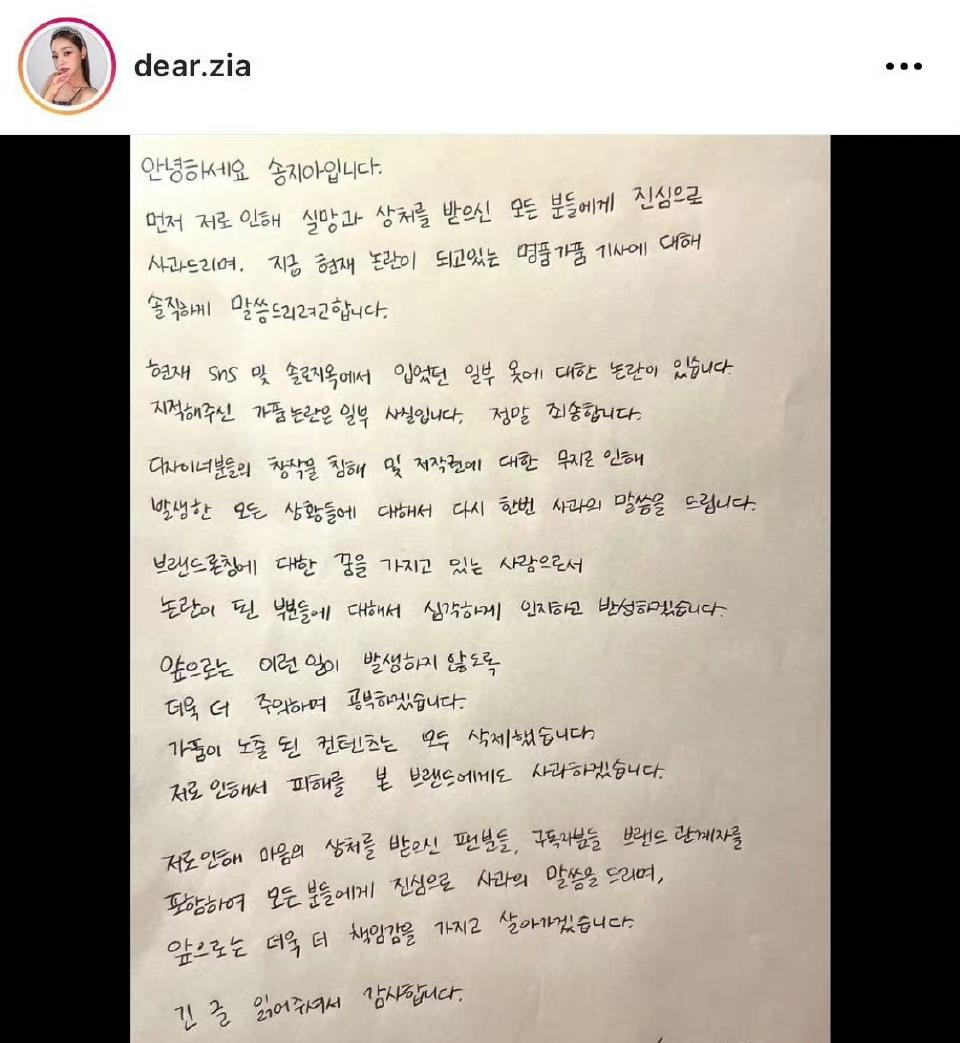 dear.zia
안녕하세요 송지아입니다.
먼저 저로 인해 실망과 상처를 받으신 모든 분들에게 진심으로
사과드리며, 지금 현재 논란이 되고있는 명품가품 기사에 대해
솔직하게 말씀드리려고합니다.
현재 sns 및 솔로지옥에서 입었던 일부 옷에 대한 논란이 있습니다.
지적해주신 가품논란은 일부 사실입니다. 정말 죄송합니다.
디자이너분들의 창작물 침해 및 저작권에 대한 무지로 인해
발생한 모든 상황들에 대해서 다시 한번 사과의 말씀을 드립니다.
브랜드론칭에 대한 꿈을 가지고 있는 사람으로서
논란이 된 부분들에 대해서 심각하게 인지하고 반성하겠습니다.
앞으로는 이런 일이 발생하지 않도록
더욱 더 주의하며 공부하겠습니다.
가품이 노출 된 컨텐츠는 모두 삭제했습니다
저로 인해서 피해를 본 브랜드에게도 사과하겠습니다.
저로인해 마음의 상처를 받으신 팬분들, 구독자분들 브랜드 관계자를
포함하여 모든 분들에게 진심으로 사과의 말씀을 드리며,
앞으로는 더욱 더 책임감을 가지고 살아가겠습니다.
긴 글 읽어주셔서 감사합니다.